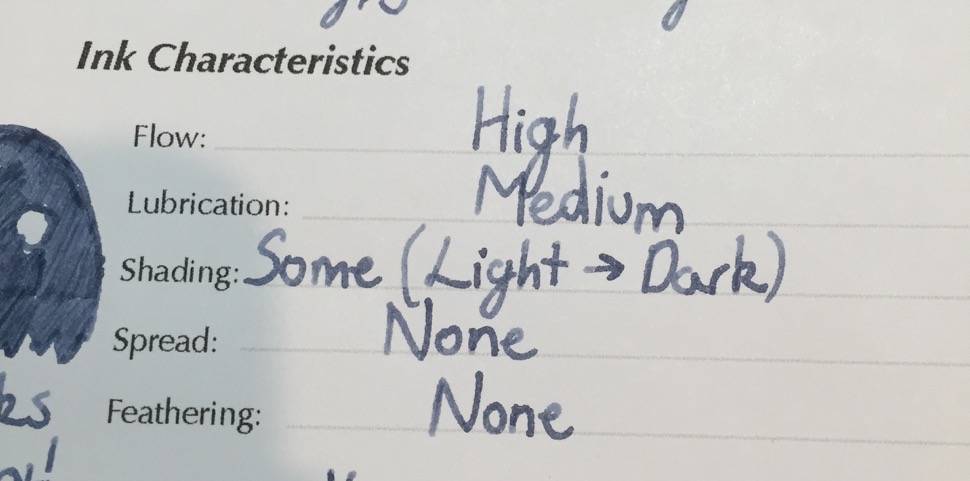 Ink Characteristics
Flow: High
Lubrication: Medium
Shading: Some (Light → Dark)
Spread: None
Feathering: None